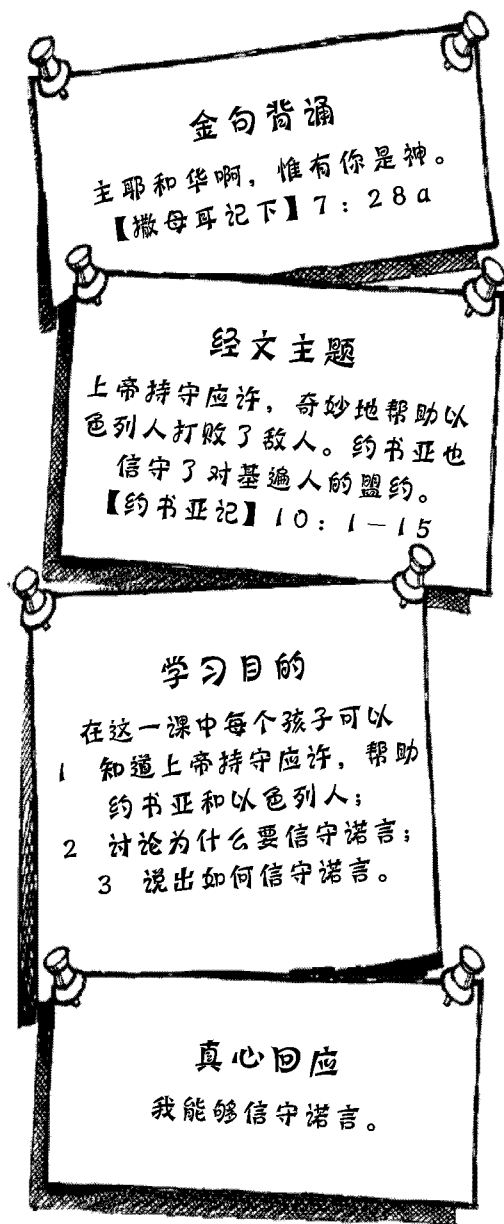 金句背诵
主耶和华啊，惟有你是神。
【撒母耳记下】7：28a
经文主题
上帝持守应许，奇妙地帮助以
色列人打败了敌人。约书亚也
信守了对基遍人的盟约。
【约书亚记】10：1－15
学习目的
在这一课中每个孩子可以
1 知道上帝持守应许，帮助
约书亚和以色列人；
2 讨论为什么要信守诺言；
3 说出如何信守诺言。
真心回应
我能够信守诺言。